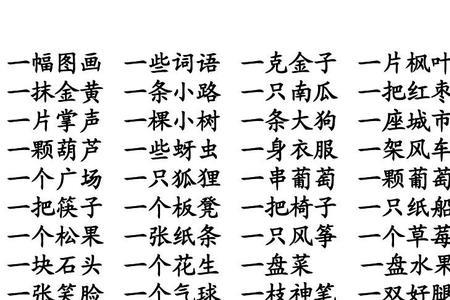 一幅图画 一些词语 一克金子 一片枫叶
一抹金黄 一条小路 一只南瓜 一把红枣
一片掌声 一棵小树 一条大狗 一座城市
一颗葫芦 一些蚜虫 一身衣服 一架风车
一个广场 一只狐狸 一串葡萄 一颗葡萄
一把筷子 一个板凳 一把椅子 一只纸船
一个松果 一张纸条 一只风筝 一个草莓
一块石头 一个花生 一盘菜 一盘水果
一张笑脸 一个气球 一枝神笔 一双好腿